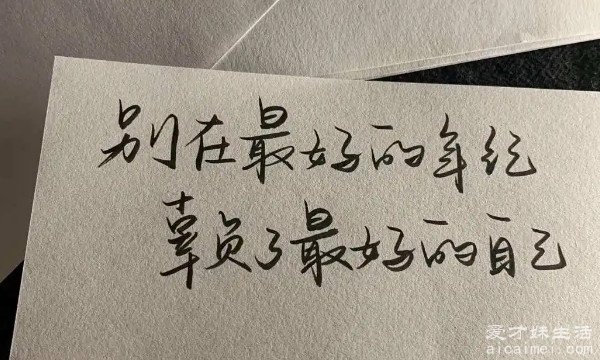 别在最好的年纪
辜负了最好的自己
爱才妹生活
aicaimei.com